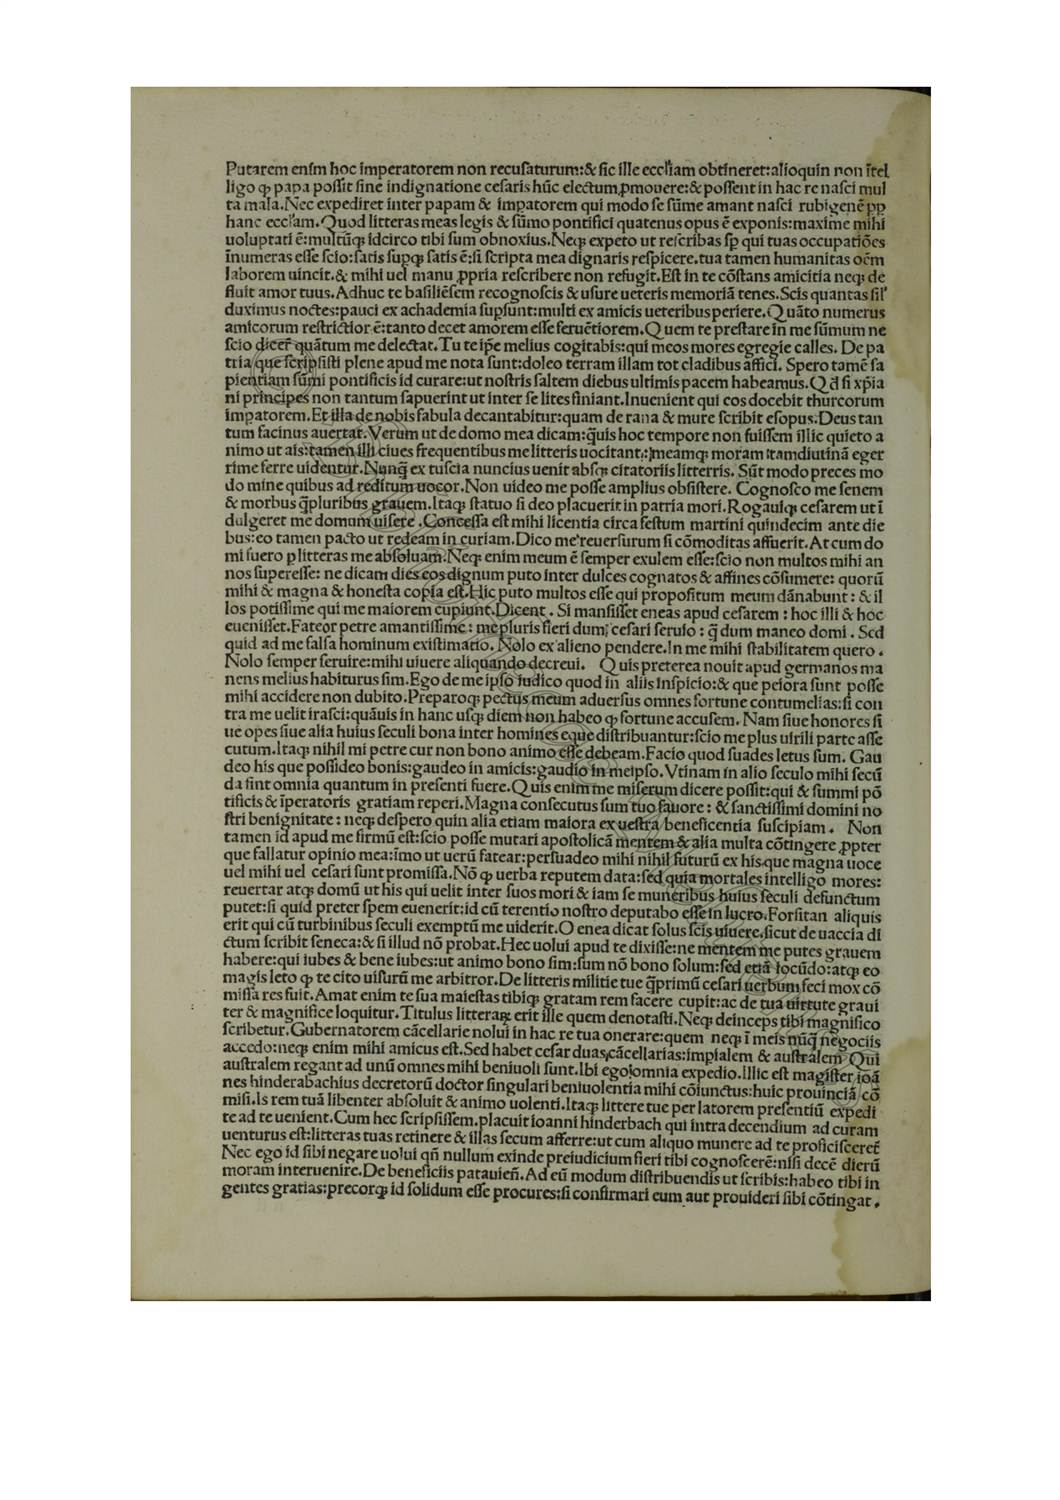 Putarem enim hoc imperatorem non recusaturum:& sic ille eccl̃iam obtineret:alioquin non ĩtel
ligo ꝙ papa possit sine indignatione cesaris hũc electum ꝓmouere:& possent in hac re nasci mul
ta mala.Nec expediret inter papam & imꝑatorem qui modo se sũme amant nasci rubigenẽ ꝓꝑ
hanc eccl̃am.Quod litteras meas legis & sũmo pontifici quatenus opus ẽ exponis:maxime mihi
uoluptati ẽ:multũq; idcirco tibi sum obnoxius.Neq; expeto ut rescribas sꝑ qui tuas occupatiões
ĩnumeras esse scio:satis suꝑq; satis ẽ:si scripta mea dignaris respicere.tua tamen humanitas oẽm
laborem uincit.& mihi uel manu ꝓpria rescribere non refugit.Est in te cõstans amicitia neq; de
fluit amor tuus.Adhuc te basiliẽsem recognoscis & usure ueteris memoriã tenes.Scis quantas sil'
duximus noctes:pauci ex achademia suꝑsunt:multi ex amicis ueteribus periere.Quãto numerus
amicorum restrictior ẽ:tanto decet amorem esse feruẽtiorem.Quem te prestare in me sũmum ne
scio dicer̃ quãtum me delectat.Tu te ip̃e melius cogitabis:qui meos mores egregie calles. De pa
tria que scripsisti plene apud me nota sunt:doleo terram illam tot cladibus affici. Spero tamẽ sa
pientiam sũmi pontificis id curare:ut nostris saltem diebus ultimis pacem habeamus.Qd̃ si xp̃ia
ni principes non tantum sapuerint ut inter se lites finiant.Inuenient qui eos docebit thurcorum
imꝑatorem.Et illa de nobis fabula decantabitur:quam de rana & mure scribit esopus.Deus tan
tum facinus auertat.Verum ut de domo mea dicam:q̃uis hoc tempore non fuissem illic quieto a
nimo ut ais:tamen illi ciues frequentibus me litteris uocitant,:)meamq; moram tamdiutinã eger
rime ferre uidentur.Nunq̃ ex tuscia nuncius uenit absq; citatoriis litterris. Sũt modo preces mo
do mine quibus ad reditum uocor.Non uideo me posse amplius obsistere. Cognosco me senem
& morbus q̃pluribus grauem.Itaq; statuo si deo placuerit in patria mori.Rogauiq; cesarem ut ĩ
dulgeret me domum uisere .Concessa est mihi licentia circa festum martini quindecim ante die
bus:eo tamen pacto ut redeam in curiam.Dico me reuersurum si cõmoditas affuerit.At cum do
mi fuero ꝑ litteras me absoluam.Neq; enim meum ẽ semper exulem esse:scio non multos mihi an
nos superesse: ne dicam dies eos dignum puto inter dulces cognatos & affines cõsumere: quorũ
mihi & magna & honesta copia est.Hic puto multos esse qui propositum meum dãnabunt : & il
los potissime qui me maiorem cupiunt.Dicent . Si mansisset eneas apud cesarem : hoc illi & hoc
euenisset.Fateor petre amantissime : me pluris fieri dum; cesari seruio : q̃ dum maneo domi . Sed
quid ad me falsa hominum existimatio. Nolo ex alieno pendere.In me mihi stabilitatem quero .
Nolo semper seruire:mihi uiuere aliquando decreui. Quis preterea nouit apud germanos ma
nens melius habiturus sim.Ego de me ipso iudico quod in aliis inspicio:& que peiora sunt posse
mihi accidere non dubito.Preparoq; pectus meum aduersus omnes fortune contumelias:si con
tra me uelit irasci:quãuis in hanc usq; diem non habeo ꝙ fortune accusem. Nam siue honores si
ue opes siue alia huius seculi bona inter homines eque distribuantur:scio me plus uirili parte asse
cutum.Itaq; nihil mi petre cur non bono animo esse debeam.Facio quod suades letus sum. Gau
deo his que possideo bonis:gaudeo in amicis:gaudio in meipso.Vtinam in alio seculo mihi secũ
da sint omnia quantum in presenti fuere.Quis enim me miserum dicere possit:qui & summi põ
tificis & ĩperatoris gratiam reperi.Magna consecutus sum tuo fauore : & sanctissimi domini no
stri benignitate : neq; despero quin alia etiam maiora ex uestra beneficentia suscipiam . Non
tamen id apud me firmũ est:scio posse mutari apostolicã mentem & alia multa cõtingere ꝓpter
que fallatur opinio mea:imo ut uerũ fatear:persuadeo mihi nihil futurũ ex his que magna uoce
uel mihi uel cesari sunt promissa.Nõ ꝙ uerba reputem data:sed quia mortales intelligo mores:
reuertar atq; domũ ut his qui uelit inter suos mori & iam se muneribus huius seculi defunctum
putet:si quid preter spem euenerit:id cũ terentio nostro deputabo esse in lucro.Forsitan aliquis
erit qui cũ turbinibus seculi exemptũ me uiderit.O enea dicat solus scis uiuere.sicut de uaccia di
ctum scribit seneca:& si illud nõ probat.Hec uolui apud te dixisse:ne mentem me putes grauem
habere:qui iubes & bene iubes:ut animo bono sim:sum nõ bono solum:sed etiã iocũdo:atq; eo
magis leto ꝙ te cito uisurũ me arbitror.De litteris militie tue q̃primũ cesari uerbum feci mox cõ
missa res fuit.Amat enim te sua maiestas tibiq; gratam rem facere cupit:ac de tua uirtute graui
ter & magnifice loquitur.Titulus litterarꝝ erit ille quem denotasti.Neq; deinceps tibi magnifico
scribetur.Gubernatorem cãcellarie nolui in hac re tua onerare:quem neq; ĩ meis nũq̃ negociis
accedo:neq; enim mihi amicus est.Sed habet cesar duas cãcellarias:impialem & australem Qui
australem regant ad unũ omnes mihi beniuoli sunt.Ibi ego omnia expedio.Illic est magister ioã
nes hinderabachius decretorũ doctor singulari beniuolentia mihi cõiunctus:huic prouinciã cõ
misi.Is rem tuã libenter absoluit & animo uolenti.Itaq; littere tue per latorem presentiũ expedi
te ad te uenient.Cum hec scripsissem.placuit ioanni hinderbach qui intra decendium ad curam
uenturus est:litteras tuas retinere & illas secum afferre:ut cum aliquo munere ad te proficisceret̃
Nec ego id sibi negare uolui qñ nullum exinde preiudicium fieri tibi cognoscerẽ:nisi decẽ dierũ
moram interuenire.De beneficiis patauieñ.Ad eũ modum distribuendis ut scribis:habeo tibi in
gentes gratias:precorq; id solidum esse procures:si confirmari eum aut prouideri sibi cõtingat .